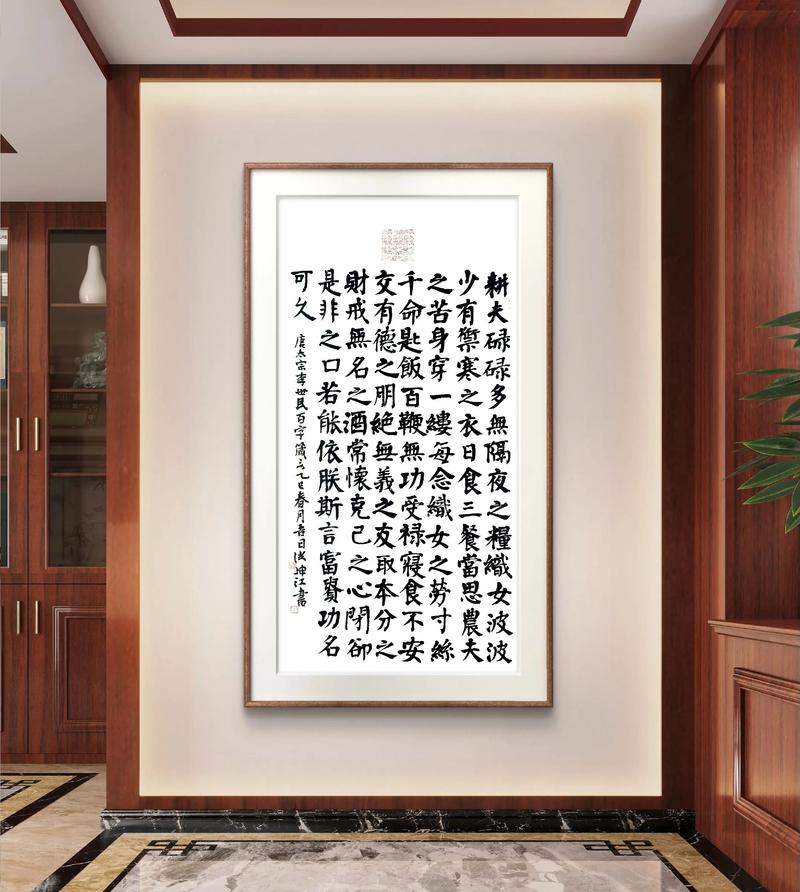 耕夫碌碌多無隔夜之糧織女波波
少有禦寒之衣日食三餐當思農夫
之苦身穿一縷每念織女之勞寸絲
千命匙飯百鞭無功受祿寢食不安
交有德之朋絕無義之友取本分之
財戒無名之酒常懷克己之心閉卻
是非之口若能依朕斯言富貴功名
可久
唐太宗李世民百字箴言乙巳春月吉日坤江書